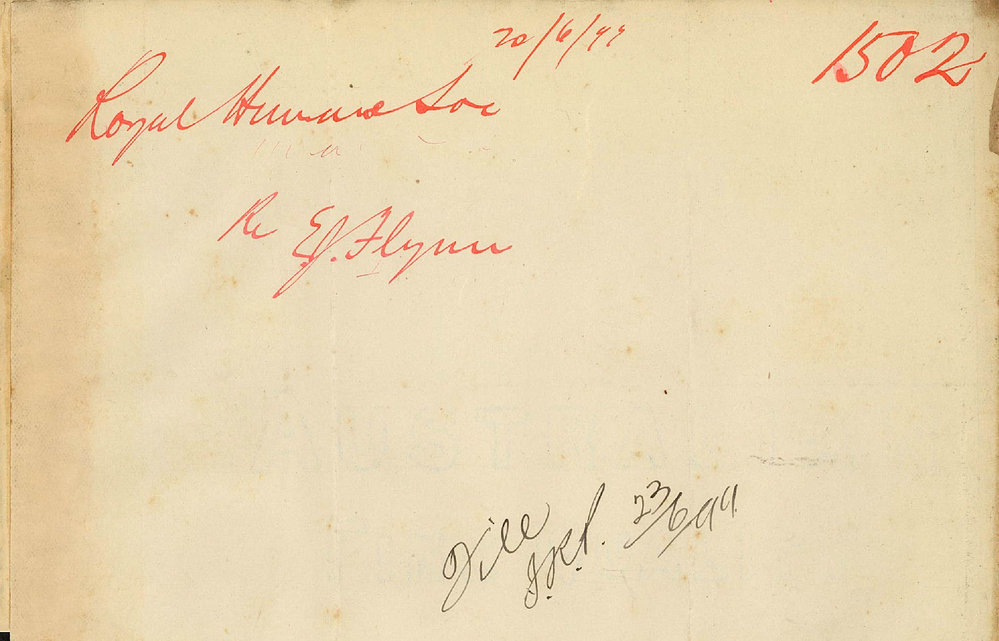 20/6/99
1502
Royal Humane Soc
Re E.J. Flynn
File
23/6/99